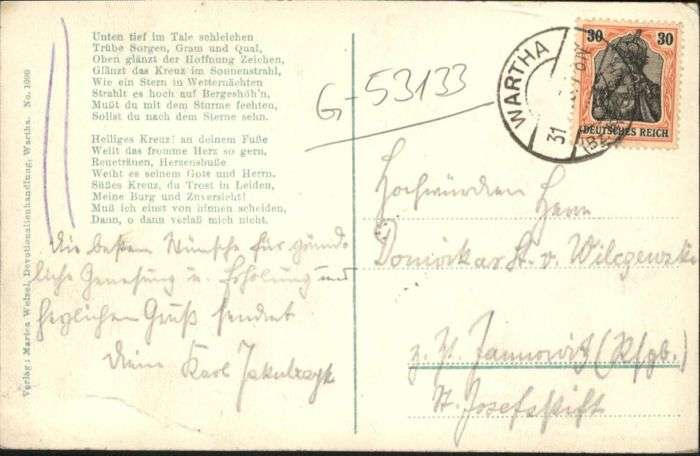 Unten tief im Tale schleichen
Trübe Sorgen, Gram und Qual,
Oben glänzt der Hoffnung Zeichen,
Glänzt das Kreuz im Sonnenstrahl,
Wie ein Stern in Wetternächten
Strahlt es hoch auf Bergeshöh'n,
Mußt du mit dem Sturme fechten,
Sollst du nach dem Sterne sehn.
Heiliges Kreuz! an deinem Fuße
Weilt das fromme Herz so gern,
Reuetränen, Herzensbuße
Weiht es seinem Gott und Herrn.
Süßes Kreuz, du Trost in Leiden,
Meine Burg und Zuversicht!
Muß ich einst von hinnen scheiden,
Dann, o dann verlaß mich nicht.
Verlag: Marien Welzel, Devotionalienhandlung, Wartha. No. 1090
G-53133
WARTHA
31
30 30
DEUTSCHES REICH
Die besten Wünsche für gründ-
liche Genesung u. Erholung und
herzlichen Gruß sendet
Dein Karl
Hochwürden Herrn
Domvikar St. v. Wilczewski
z. Zt. Jannowitz (Rsgb.)
St. Josefsstift